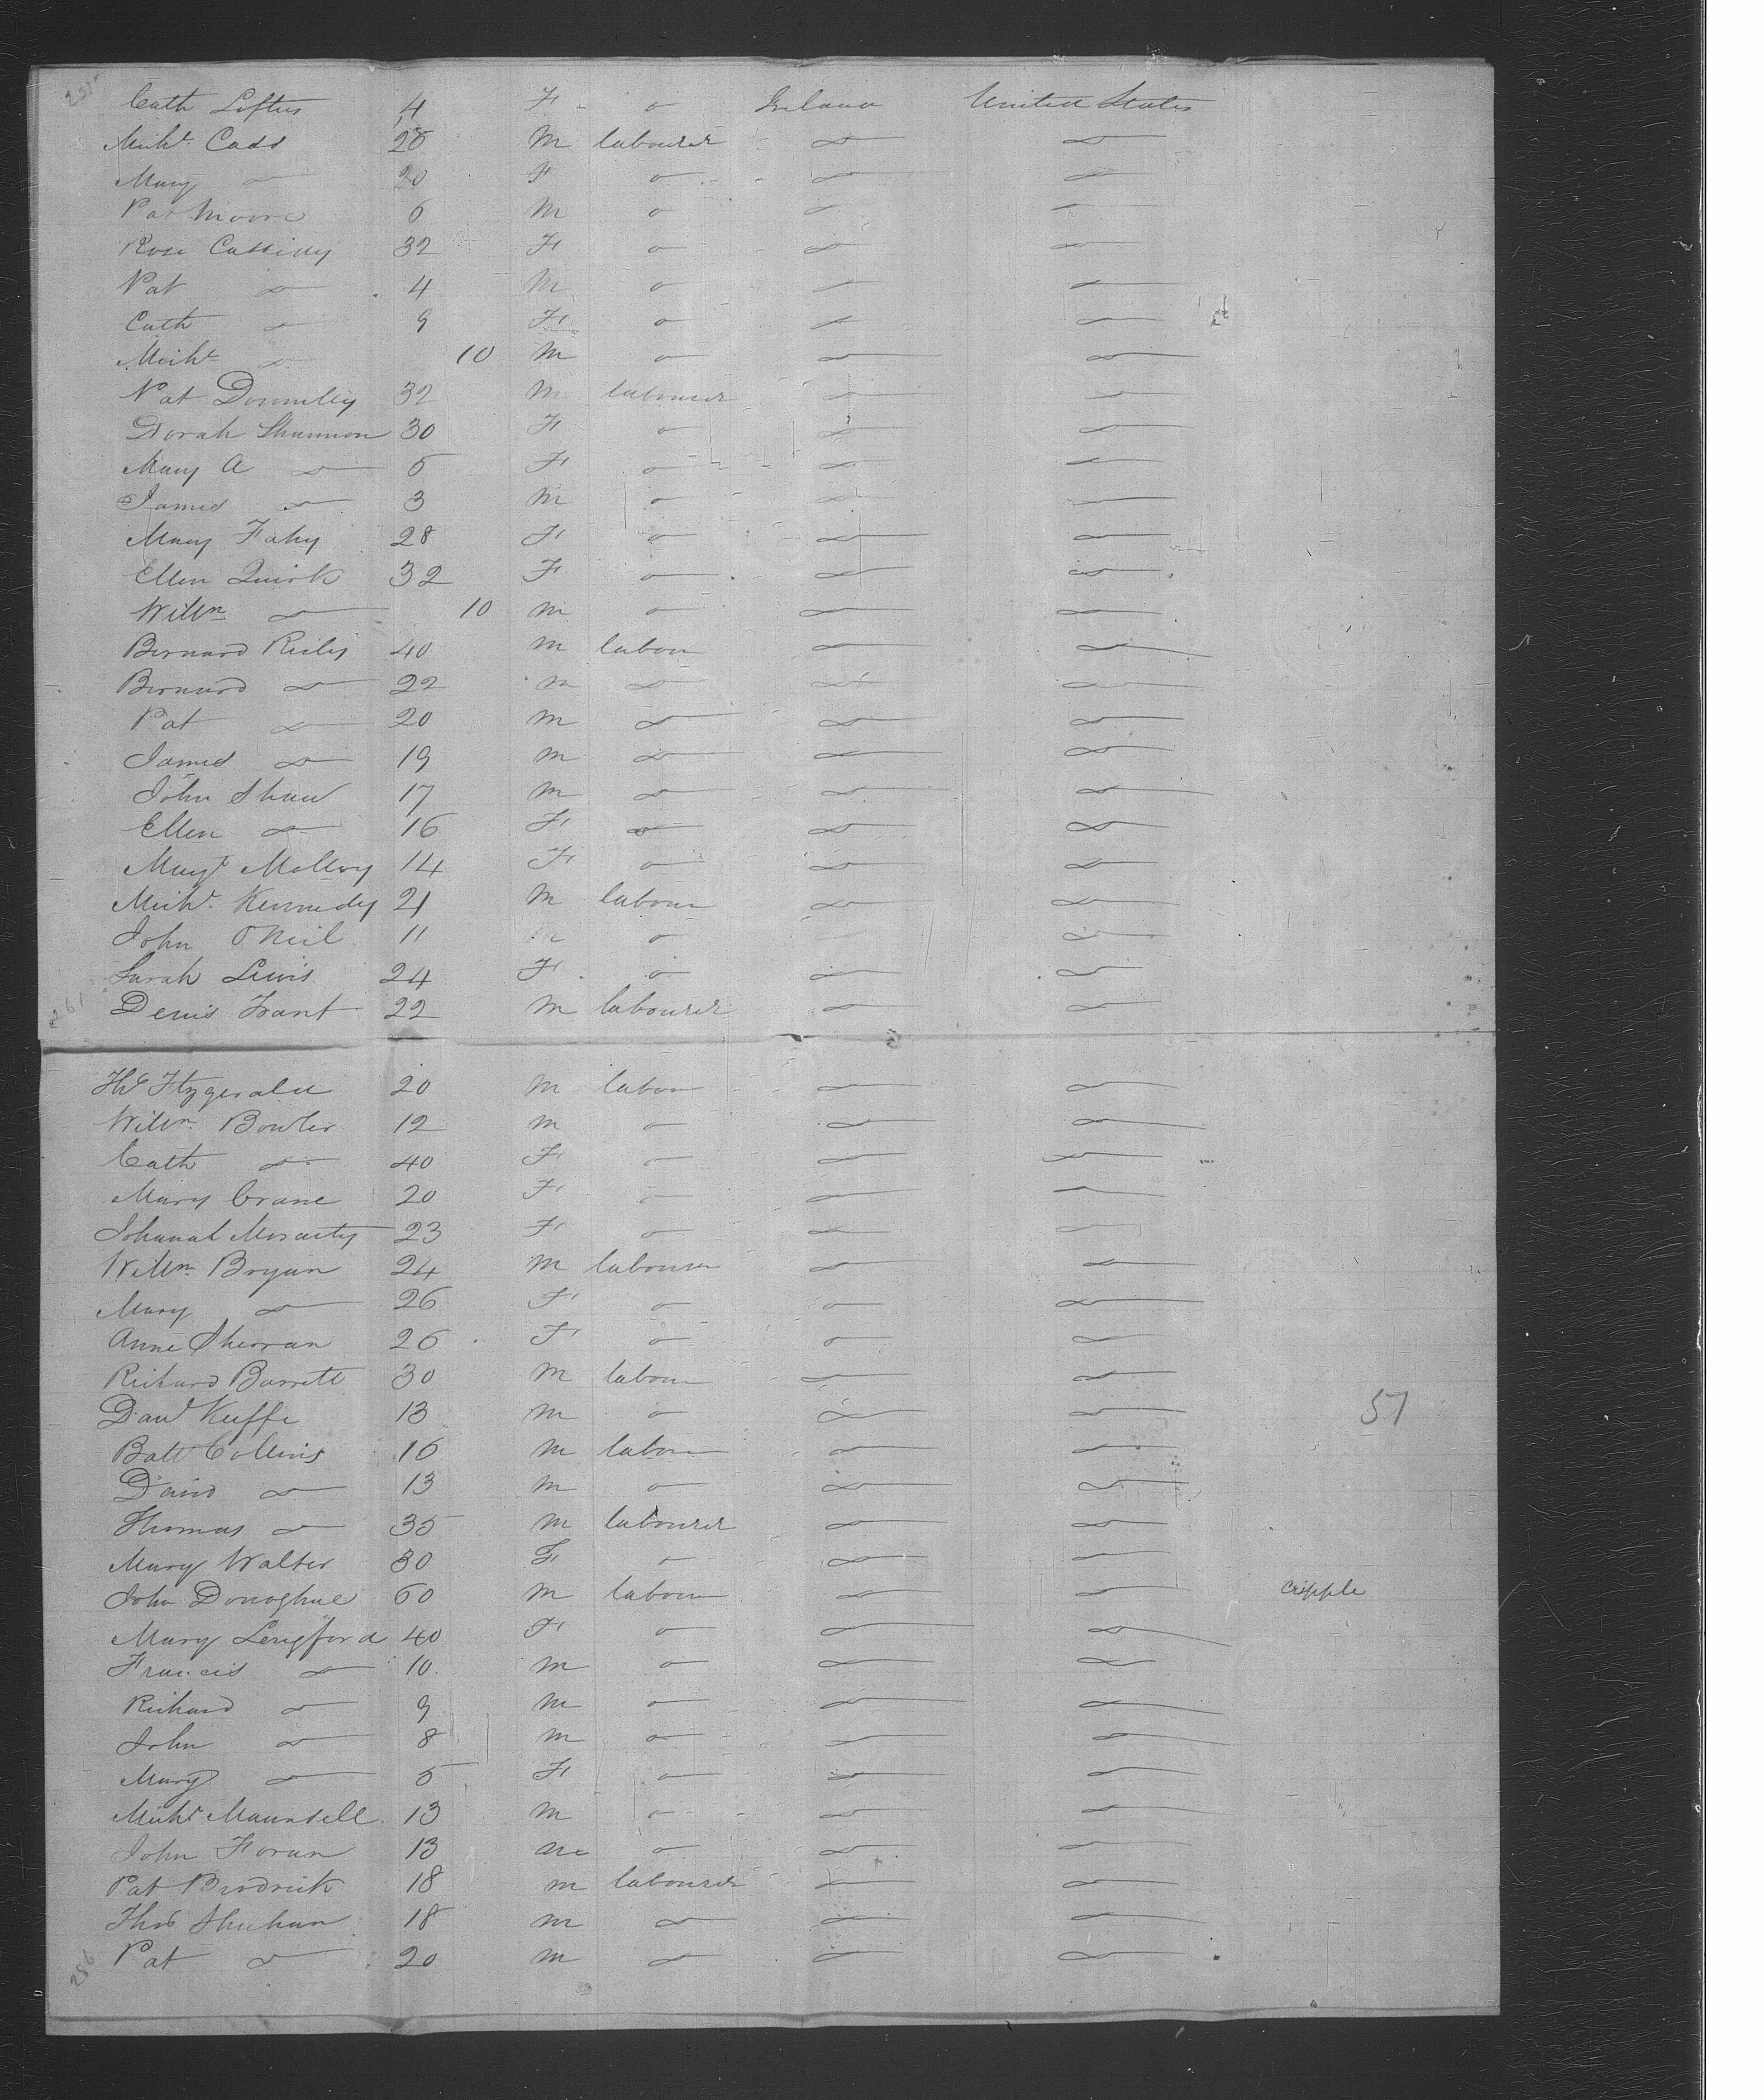 Cath Loftus 4 F o Ireland United States
Michl. Cass 28 M labourer do do
Mary do 20 F o do do
Pat Moore 6 M o do do
Rose Cassidy 32 F o do do
Pat do 4 M o do do
Cath do 9 F o do do
Michl do 10 M o do do
Pat Donnelly 32 M labourer do do
Norah Shannon 30 F o do do
Mary A do 5 F o do do
James do 3 M o do do
Mary Fahy 28 F o do do
Ellen Quirk 32 F o do do
Willm do 10 M o do do
Bernard Reily 40 M labour do do
Bernard do 22 M do do do
Pat do 20 M do do do
James do 19 M do do do
John Shaw 17 M do do do
Ellen do 16 F do do do
Magt Molloy 14 F o do do
Michl. Kennedy 21 M labour do do
John O'Neil 11 M o do do
Sarah Lewis 24 F o do do
261
Denis Frant 22 M labourer do do
Ths Fitzgerald 20 M labour do do
Willm. Bowler 12 M o do do
Cath do 40 F o do do
Mary Crane 20 F o do do
Johanah Moriarty 23 F o do do
Willm. Bryan 24 M labourer do do
Mary do 26 F o o do
Anne Sherran 26 F o o do
Richard Barrett 30 M labour do do
Danl Keeffe 13 M o do do
57
Batt Collins 16 M labour do do
David do 13 M o do do
Thomas do 35 M labourer do do
Mary Walter 30 F o do do
John Donoghue 60 M labour do do cripple
Mary Longford 40 F o do do
Francis do 10 M o do do
Richard do 9 M o do do
John do 8 M o do do
Mary do 5 F o do do
Michl Maunsell 13 M o do do
John Foran 13 M o do do
Pat Brodrick 18 M labourer do do
Thos Shehan 18 M do do do
Pat do 20 M do do do
286